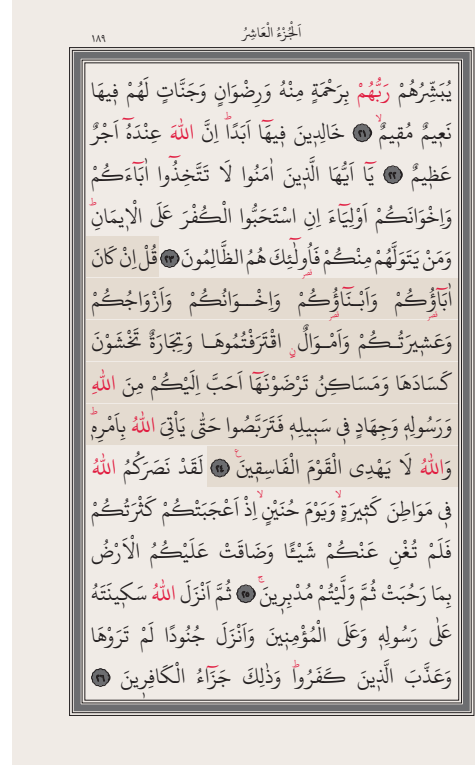 ١٨٩ اَلْجُزْءُ الْعَاشِرُ
يُبَشِّرُهُمْ رَبُّهُمْ بِرَحْمَةٍ مِنْهُ وَرِضْوَانٍ وَجَنَّاتٍ لَهُمْ ف۪يهَا
نَع۪يمٌ مُق۪يمٌۙ ﴿٢١﴾ خَالِد۪ينَ ف۪يهَٓا اَبَدًاۜ اِنَّ اللّٰهَ عِنْدَهُٓ اَجْرٌ
عَظ۪يمٌ ﴿٢٢﴾ يَٓا اَيُّهَا الَّذ۪ينَ اٰمَنُوا لَا تَتَّخِذُٓوا اٰبَٓاءَكُمْ
وَاِخْوَانَكُمْ اَوْلِيَٓاءَ اِنِ اسْتَحَبُّوا الْكُفْرَ عَلَى الْا۪يمَانِۜ
وَمَنْ يَتَوَلَّهُمْ مِنْكُمْ فَاُو۬لٰٓئِكَ هُمُ الظَّالِمُونَ ﴿٢٣﴾ قُلْ اِنْ كَانَ
اٰبَٓاؤُ۬كُمْ وَاَبْنَٓاؤُ۬كُمْ وَاِخْوَانُكُمْ وَاَزْوَاجُكُمْ
وَعَش۪يرَتُكُمْ وَاَمْوَالٌۨ اقْتَرَفْتُمُوهَا وَتِجَارَةٌ تَخْشَوْنَ
كَسَادَهَا وَمَسَاكِنُ تَرْضَوْنَهَٓا اَحَبَّ اِلَيْكُمْ مِنَ اللّٰهِ
وَرَسُولِه۪ وَجِهَادٍ ف۪ي سَب۪يلِه۪ فَتَرَبَّصُوا حَتّٰى يَأْتِيَ اللّٰهُ بِاَمْرِه۪ۜ
وَاللّٰهُ لَا يَهْدِي الْقَوْمَ الْفَاسِق۪ينَ۟ ﴿٢٤﴾ لَقَدْ نَصَرَكُمُ اللّٰهُ
ف۪ي مَوَاطِنَ كَث۪يرَةٍۙ وَيَوْمَ حُنَيْنٍۙ اِذْ اَعْجَبَتْكُمْ كَثْرَتُكُمْ
فَلَمْ تُغْنِ عَنْكُمْ شَيْـًٔا وَضَاقَتْ عَلَيْكُمُ الْاَرْضُ
بِمَا رَحُبَتْ ثُمَّ وَلَّيْتُمْ مُدْبِر۪ينَۚ ﴿٢٥﴾ ثُمَّ اَنْزَلَ اللّٰهُ سَك۪ينَتَهُ
عَلٰى رَسُولِه۪ وَعَلَى الْمُؤْمِن۪ينَ وَاَنْزَلَ جُنُودًا لَمْ تَرَوْهَا
وَعَذَّبَ الَّذ۪ينَ كَفَرُواۜ وَذٰلِكَ جَزَٓاءُ الْكَافِر۪ينَ ﴿٢٦﴾